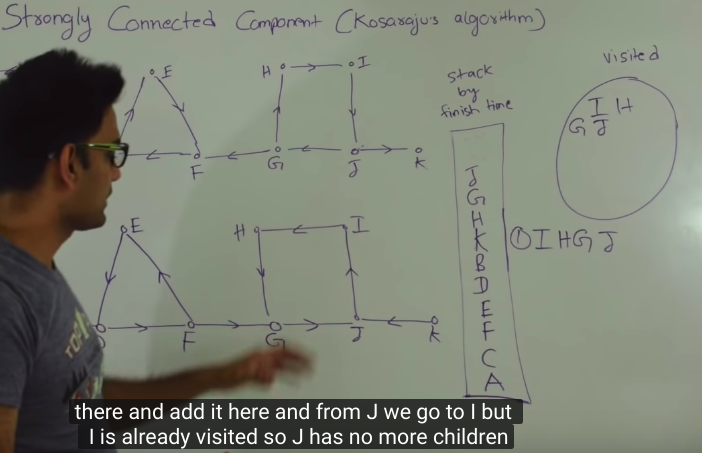 Strongly Connected Component (Kosaraju's algorithm)
E
H I
F G J K
stack
by
finish time
visited
I H
G J
J
G
H
K
B
D
E
F
C
A
① I H G J
E
H I
F G J K
there and add it here and from J we go to I but
I is already visited so J has no more children